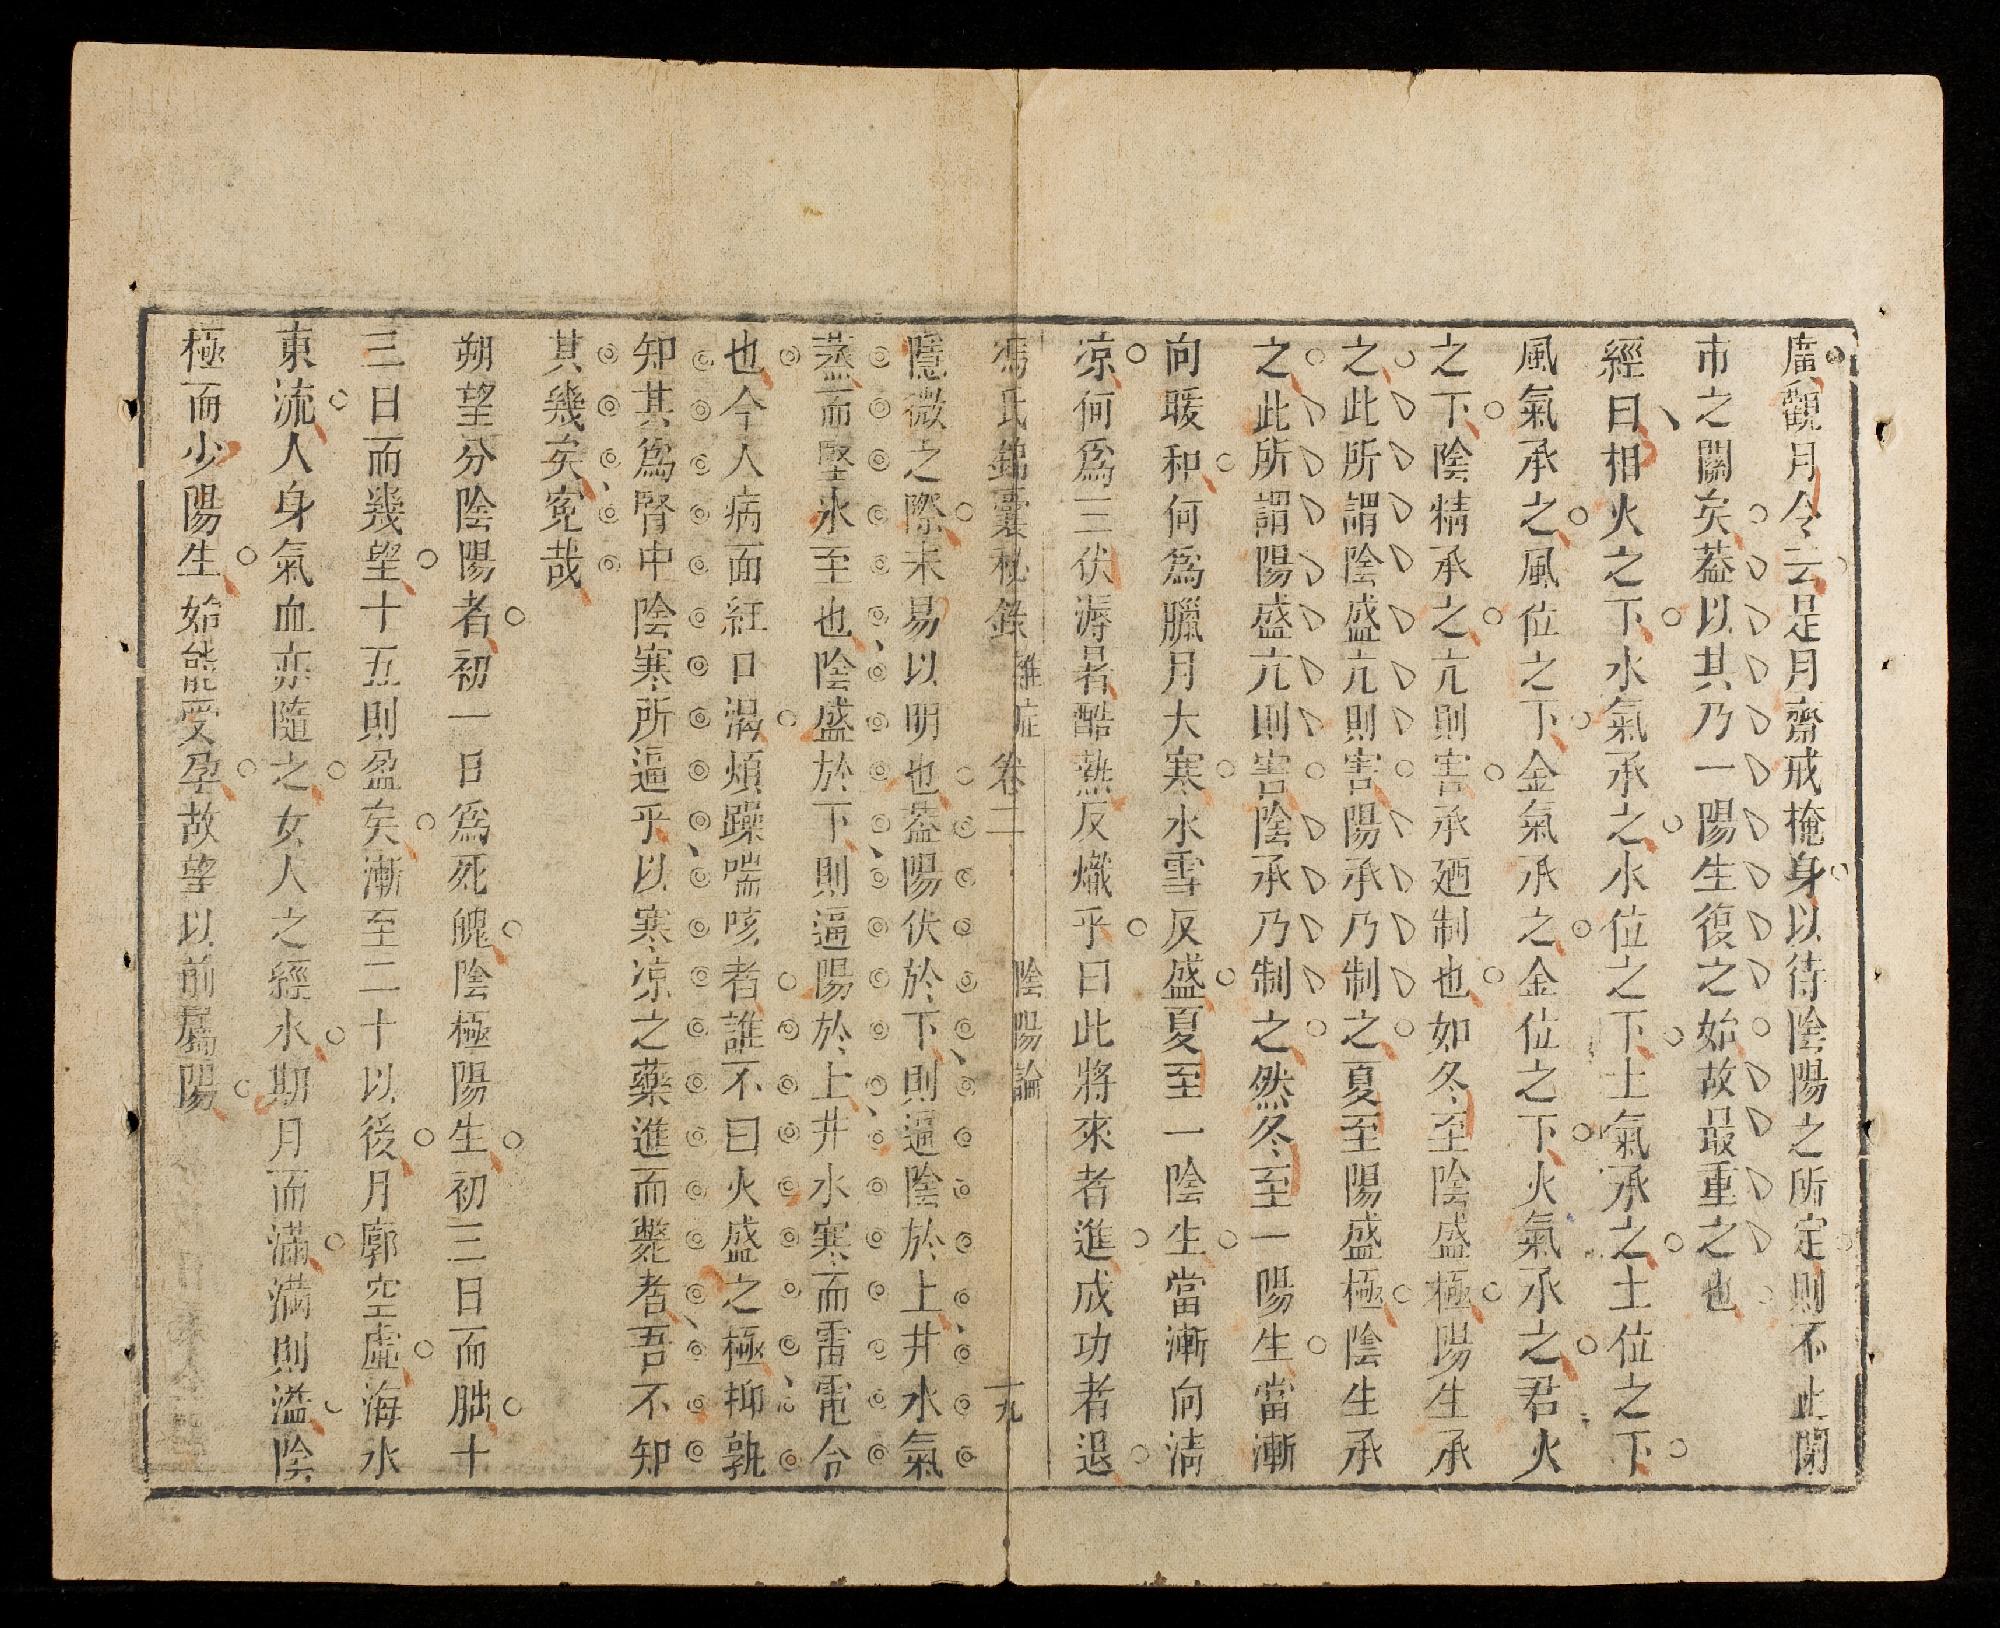 廣觀月令云是月齋戒掩身以待陰陽之所定則不止關
市之關矣葢以其乃一陽生復之始故最重之也
經曰相火之下水氣承之水位之下土氣承之土位之下
風氣承之風位之下金氣承之金位之下火氣承之君火
之下陰精承之亢則害承廼制也如冬至陰盛極陽生承
之此所謂陰盛亢則害陽承乃制之夏至陽盛極陰生承
之此所謂陽盛亢則害陰承乃制之然冬至一陽生當漸
向暖和何爲臘月大寒水雪反盛夏至一陰生當漸向淸
凉何爲三伏溽暑酷𤍠反熾乎曰此將來者進成功者退
馮氏錦囊秘錄 雜症 卷二 陰陽論 十九
隱微之際未易以明也葢陽伏於下則逼陰於上井水氣
蒸而堅氷至也陰盛於下則逼陽於上井水寒而雷電合
也今人病面紅口渴煩躁喘咳者誰不曰火盛之極抑孰
知其爲腎中陰寒所逼乎以寒凉之藥進而斃者吾不知
其幾矣寃哉
朔望分陰陽者初一日爲死魄陰極陽生初三日而朏十
三日而幾望十五則盈矣漸至二十以後月廓空虛海水
東流人身氣血亦隨之女人之經水期月而滿滿則溢陰
極而少陽生始能受孕故望以前屬陽